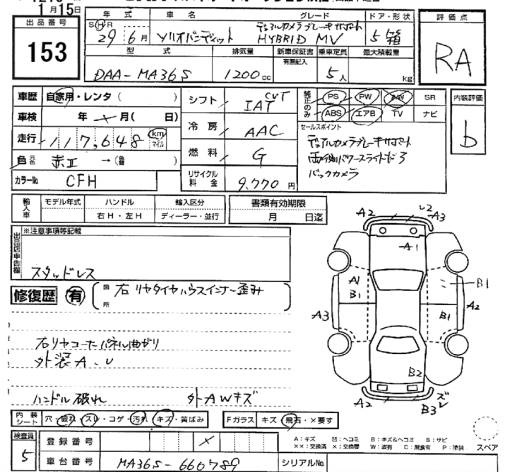 月15日
出品番号
153
年式 車名 グレード ドア・形状
S H R
29年6月 ソリオバンディット デュアルカメラブレーキサポート HYBRID MV 5 箱
型式 排気量 新車保証書 乗車定員 最大積載量
有無記入
DAA-MA36S 1200cc 5人 kg
評価点
RA
車歴 自家用・レンタ( )
車検 年 月( 日)
走行 117,648 km マイル
色 元色 赤II → (色 )
カラーNo CFH
シフト CVT IAT
冷房 AAC
燃料 G
リサイクル料金 9,770円
純正のみ PS PW AW SR
ABS エアB TV ナビ
セールスポイント
デュアルカメラブレーキサポート
両側パワースライドドア
バックカメラ
内装評価
b
輸入車 モデル年式 ハンドル 輸入区分
年 右H・左H ディーラー・並行
書類有効期限
月 日迄
出品店申告欄
※注意事項等記載
スタッドレス
修復歴 有 箇所 右リヤタイヤハウスインナー歪み
右リヤコーナーパネル曲がり
外装A、U
ハンドル破れ 外AWキズ
内装シート 穴・破れ・スレ・コゲ・汚れ・キズ・黄ばみ
Fガラス キズ・飛石・×要す
検査員
5
登録番号
車台番号 MA36S-660789
シリアルNo
A2 レ2 A3
A1
A1 B1
B1
A3 B1 A2
B2
A2 B3
スペア
A:キズ U:ヘコミ B:キズ&ヘコミ S:サビ